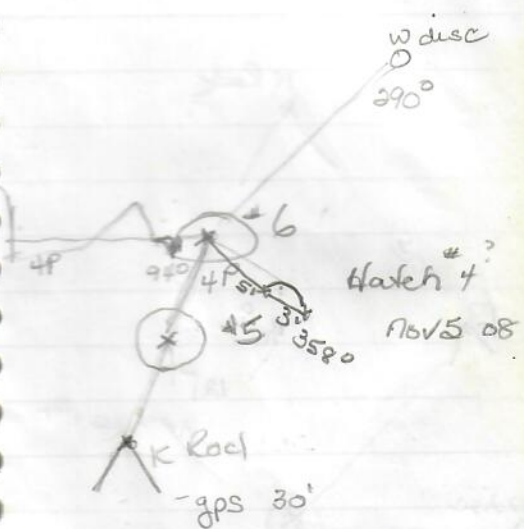 W disc
290°
#6
4P
940
4P
5'
3'
3580
Hatch #4?
Nov 5 08
#5
K Rod
-gps 30'